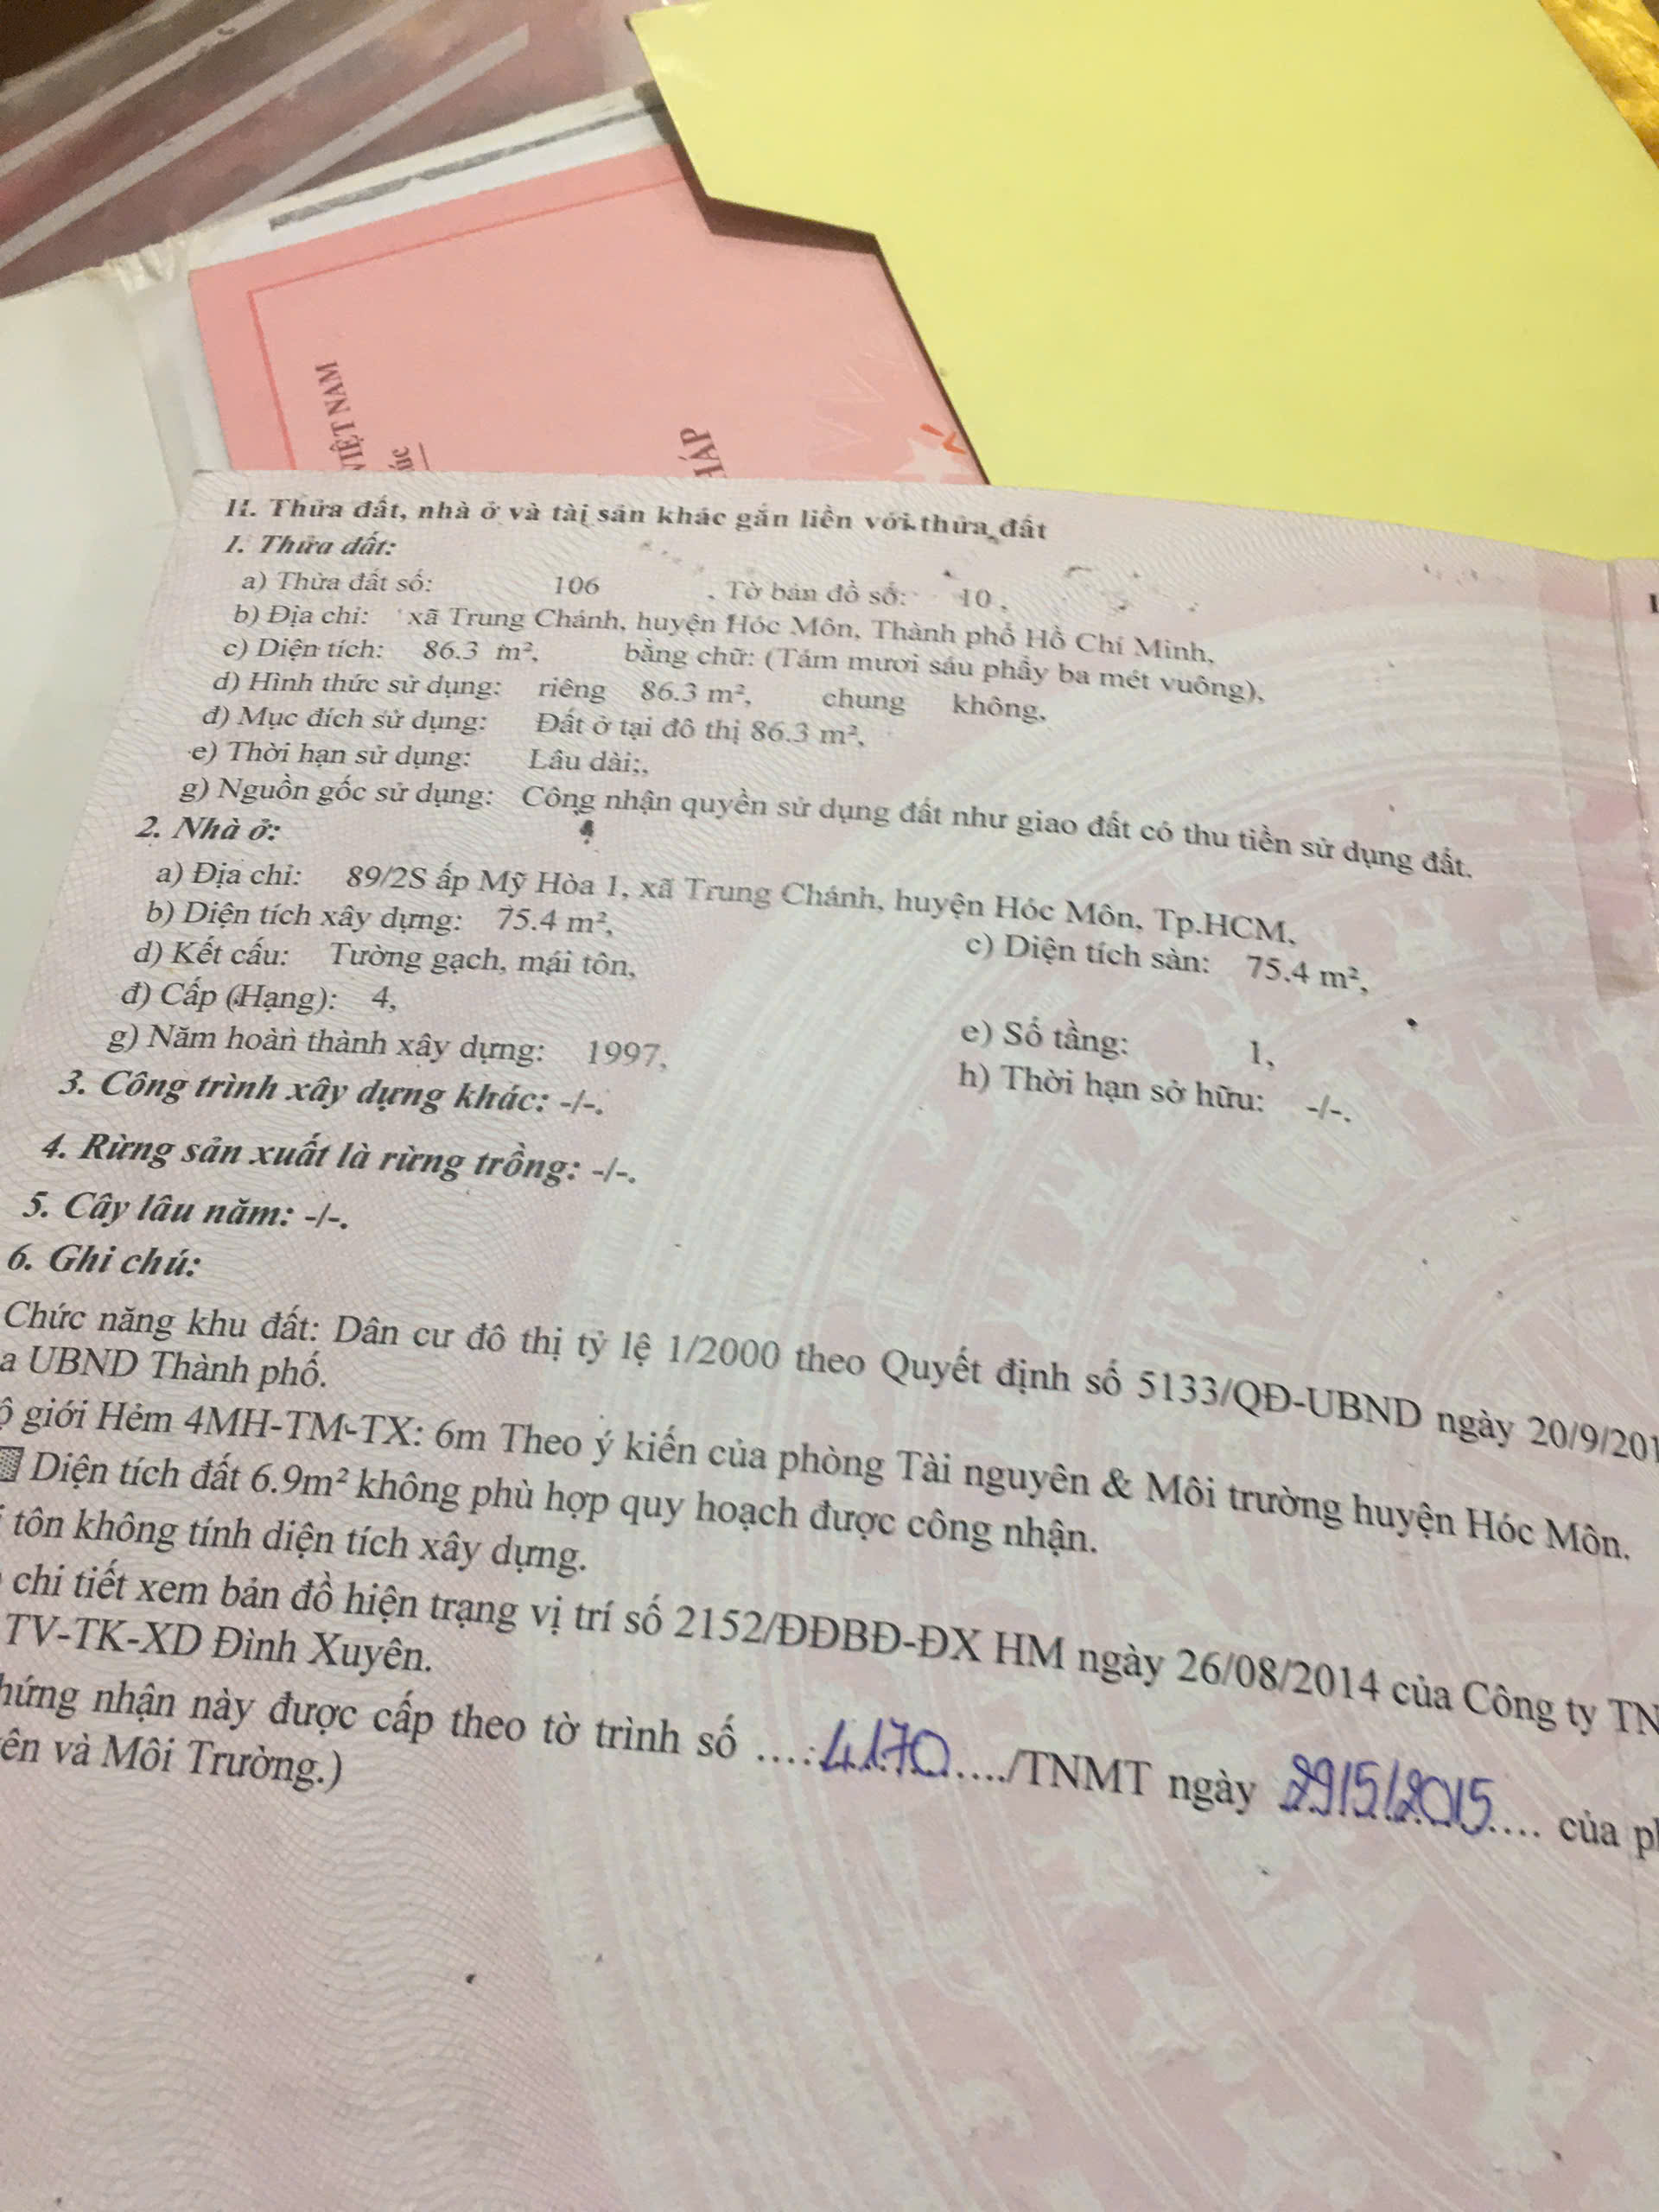 VIỆT NAM
úc
HÁP
II. Thửa đất, nhà ở và tài sản khác gắn liền với thửa đất
1. Thửa đất:
a) Thửa đất số: 106 , Tờ bản đồ số: 10 ,
b) Địa chỉ: xã Trung Chánh, huyện Hóc Môn, Thành phố Hồ Chí Minh,
c) Diện tích: 86.3 m², bằng chữ: (Tám mươi sáu phẩy ba mét vuông),
d) Hình thức sử dụng: riêng 86.3 m², chung không,
đ) Mục đích sử dụng: Đất ở tại đô thị 86.3 m²,
e) Thời hạn sử dụng: Lâu dài;,
g) Nguồn gốc sử dụng: Công nhận quyền sử dụng đất như giao đất có thu tiền sử dụng đất.
2. Nhà ở:
a) Địa chỉ: 89/2S ấp Mỹ Hòa 1, xã Trung Chánh, huyện Hóc Môn, Tp.HCM,
b) Diện tích xây dựng: 75.4 m², c) Diện tích sàn: 75.4 m²,
d) Kết cấu: Tường gạch, mái tôn,
đ) Cấp (Hạng): 4, e) Số tầng: 1,
g) Năm hoàn thành xây dựng: 1997, h) Thời hạn sở hữu: -/-.
3. Công trình xây dựng khác: -/-.
4. Rừng sản xuất là rừng trồng: -/-.
5. Cây lâu năm: -/-.
6. Ghi chú:
Chức năng khu đất: Dân cư đô thị tỷ lệ 1/2000 theo Quyết định số 5133/QĐ-UBND ngày 20/9/201
a UBND Thành phố.
ộ giới Hẻm 4MH-TM-TX: 6m Theo ý kiến của phòng Tài nguyên & Môi trường huyện Hóc Môn.
Diện tích đất 6.9m² không phù hợp quy hoạch được công nhận.
i tôn không tính diện tích xây dựng.
chi tiết xem bản đồ hiện trạng vị trí số 2152/ĐĐBĐ-ĐX HM ngày 26/08/2014 của Công ty TN
TV-TK-XD Đình Xuyên.
hứng nhận này được cấp theo tờ trình số ....4170..../TNMT ngày 29/5/2015.... của p
ên và Môi Trường.)